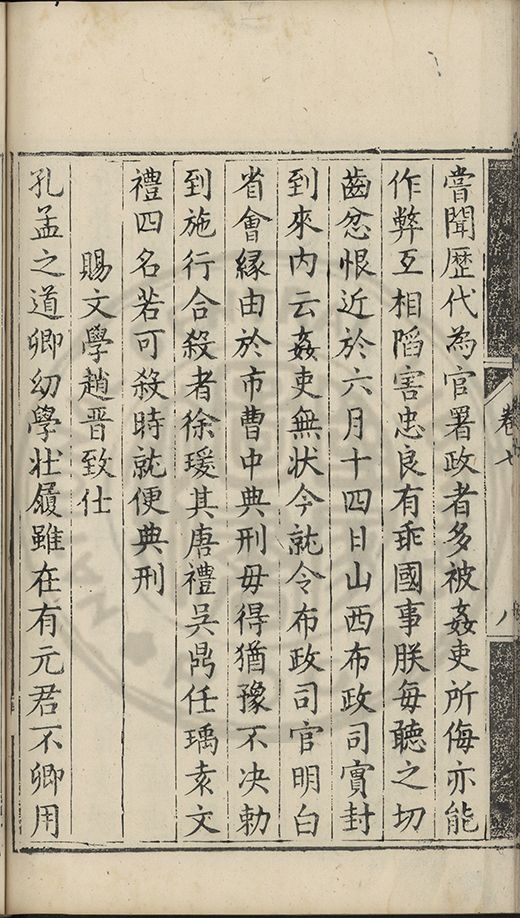 卷七
八
嘗聞歷代為官署政者多被姦吏所侮亦能
作弊互相䧟害忠良有乖國事朕每聽之切
齒忿恨近於六月十四日山西布政司實封
到來内云姦吏無狀今就令布政司官明白
省會緣由於市曹中典刑毋得猶豫不决勅
到施行合殺者徐瑗其唐禮吳昺任瑀袁文
禮四名若可殺時就便典刑
賜文學趙晋致仕
孔孟之道卿幼學壯履雖在有元君不卿用